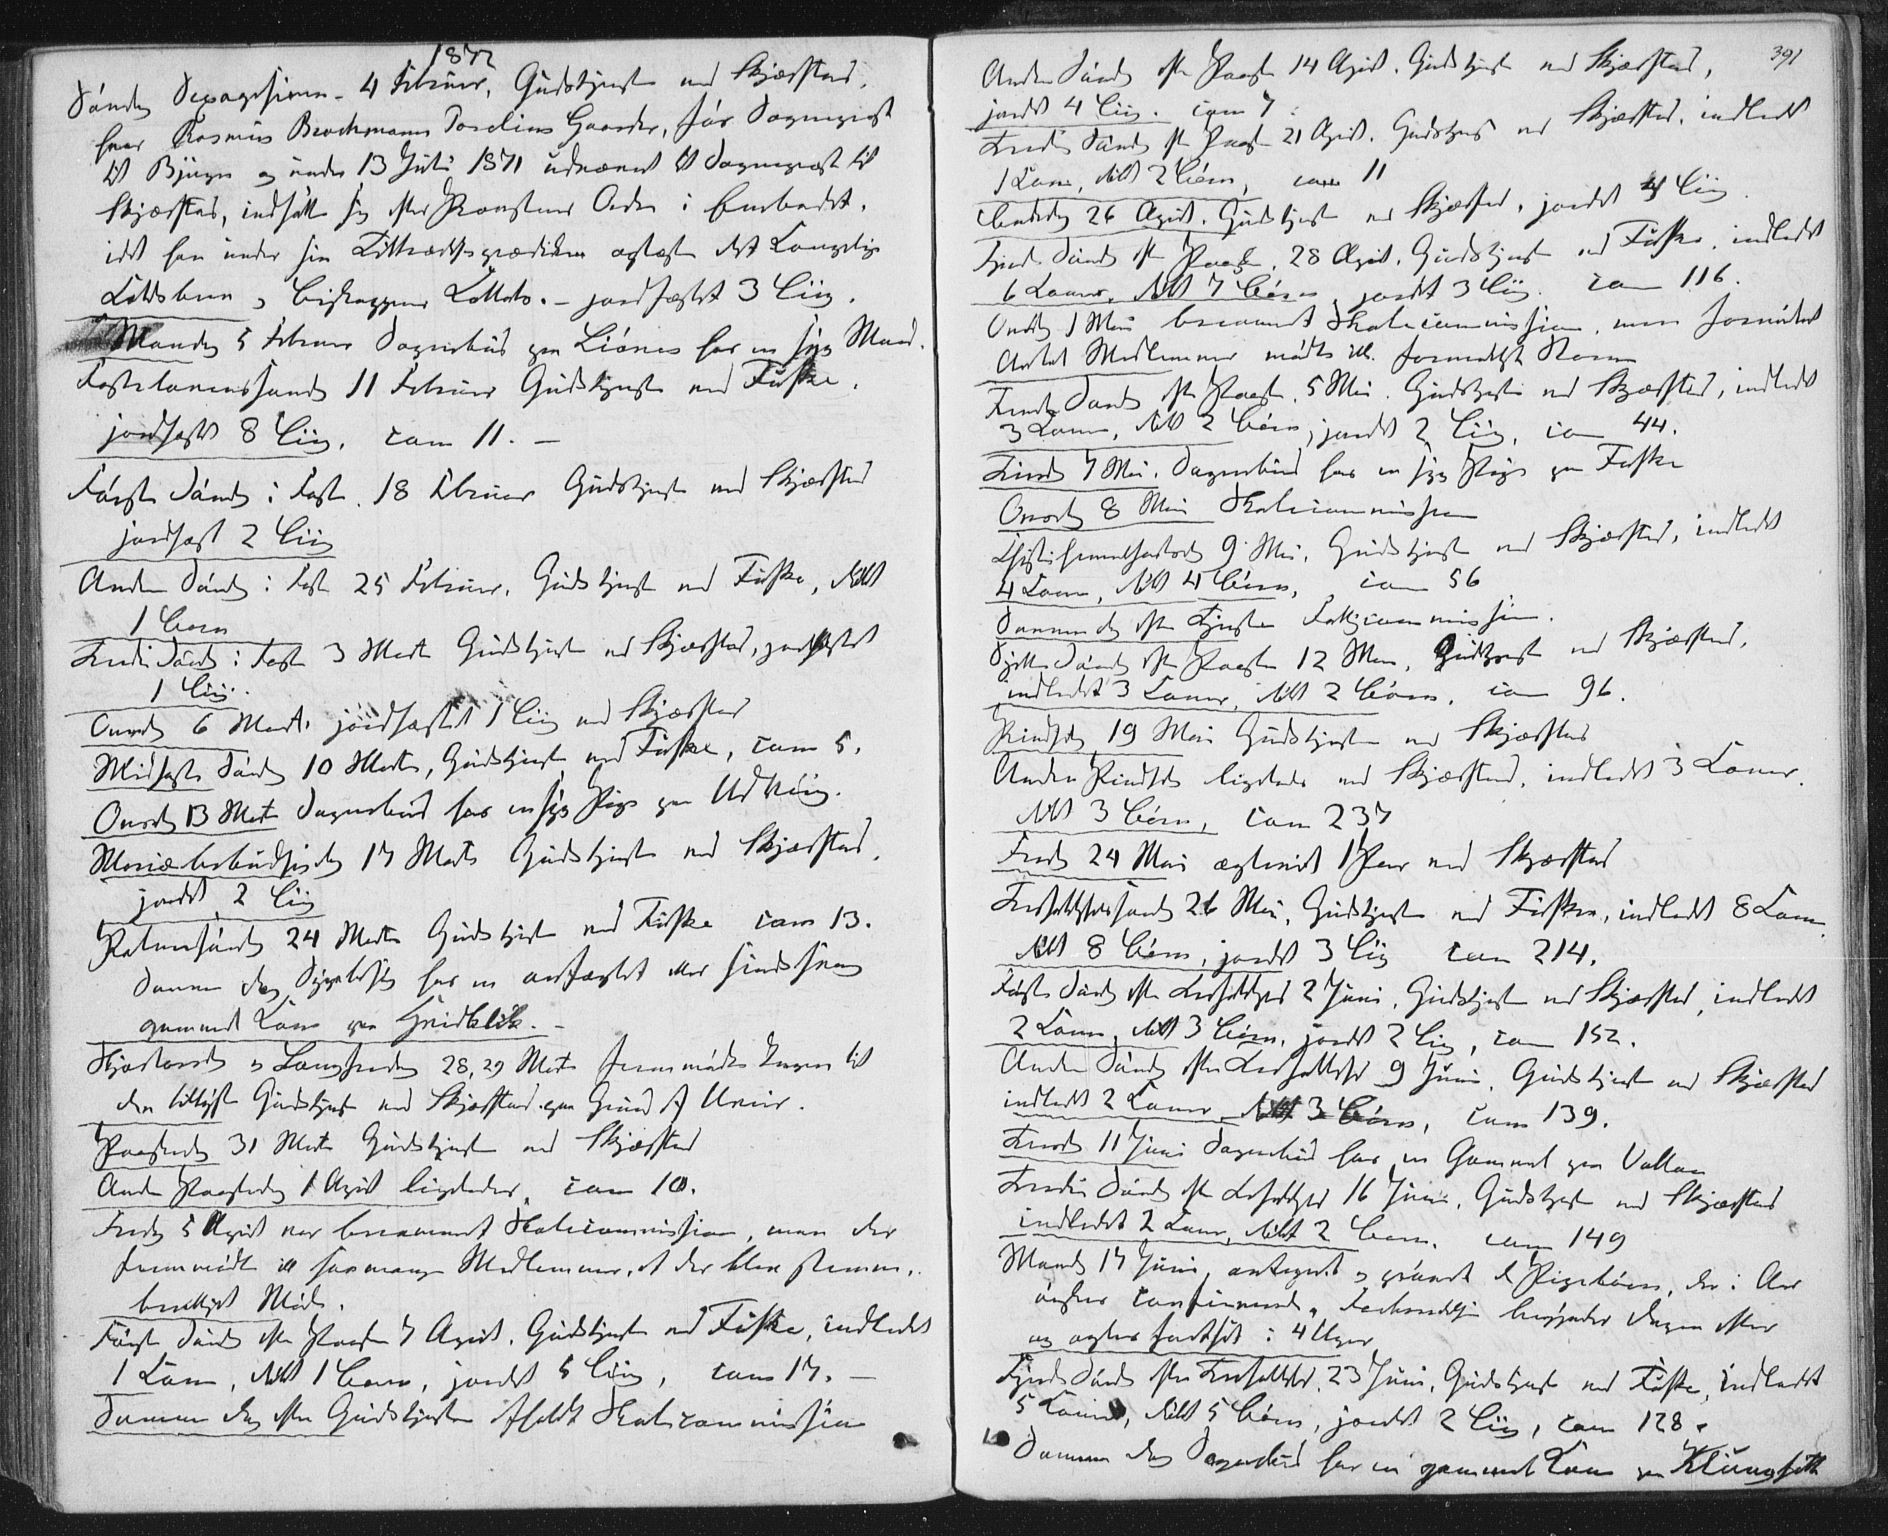 1872
Søndag Sexagesima 4 Februar, Gudstjeneste ved Skjærstad,
hvor Rasmus Brochmann Parelius Gaarder, før Sognepræst
til Bjugn og under 13 Juli 1871 udnævnt til Sognepræst til
Skjærstad, indsatte sig efter Provstens Ordre i Embedet,
idet han under sin Tiltrædelsesprædiken oplæste det Kongelige
Kaldsbrev og Biskoppens Kollats. – jordfæstet 3 Liig.
Mandag 5 Februar Sognebud paa Liønes for en syg Mand.
Fastelavenssøndag 11 Februar Gudstjeneste ved Fuske,
jordfæstet 8 Liig, com 11. –
Første Søndag i Faste 18 Februar Gudstjeneste ved Skjærstad
jordfæst 2 Liig
Anden Søndag i Faste 25 Februar, Gudstjeneste ved Fuske, døbt
1 Barn
Tredie Søndag i Faste 3 Marts Gudstjeneste ved Skjærstad, jordfæstet
1 Liig.
Onsdag 6 Marts jordfæstet 1 Liig ved Skjærstad
Midfaste Søndag 10 Marts, Gudstjeneste ved Fuske, com 5.
Onsdag 13 Marts Sognebud for en syg Pige paa Udviig.
Mariæ Bebudelsesdag 17 Marts Gudstjeneste ved Skjærstad,
jordf. 2 Liig
Palmesøndag 24 Marts Gudstjeneste ved Fuske com 13.
Samme Dag Sygebesøg for en anfægtet eller sindssvag
gammel Kone paa Hvidblik. –
Skjærtorsdag og Langfredag 28, 29 Marts fremmødte Ingen til
den tillyste Gudstjeneste ved Skjærstad paa Grund af Uveir.
Paaskedag 31 Marts Gudstjeneste ved Skjærstad
Anden Paaskedag 1 April ligeledes, com 10.
Fredag 5 April var berammet Skolecommission, men der
fremmødte ikke saamange Medlemmer, at der blev stemme-
berettiget Møde.
Første Søndag efter Paaske 7 April, Gudstjeneste ved Fuske, indledet
1 Kone, døbt 1 Barn, jordet 5 Liig, com 17. –
Samme Dag efter Gudstjenesten afholdt Skolecommission
391
Anden Søndag efter Paaske 14 April. Gudstjeneste ved Skjærstad,
jordet 4 Liig. com 7.
Tredie Søndag efter Paaske 21 April. Gudstjeneste ved Skjærstad, indledet
1 Kone, døbt 2 Børn, com 11
Bededag 26 April. Gudstjeneste ved Skjærstad, jordet 4 Liig
Fjerde Søndag efter Paaske, 28 April. Gudstjeneste ved Fuske, indledet
6 Koner, døbt 7 Børn, jordet 3 Liig. com 116.
Onsdag 1 Mai berammet Skolecommission, men fornødent
Antal Medlemmer mødte ikke.
Femte Søndag efter Paaske, 5 Mai. Gudstjeneste ved Skjærstad, indledet
3 Koner, døbt 2 Børn, jordet 2 Liig, com 44.
Tirsdag 7 Mai. Sognebud for en syg Pige paa Fuske
Onsdag 8 Mai Skolecommission
Christi Himmelfartsdag 9 Mai, Gudstjeneste ved Skjærstad, indledet
4 Koner, døbt 4 Børn, com 56
Samme Dag efter Tjenesten Fattigcommission.
Sjette Søndag efter Paaske 12 Mai, Gudstjeneste ved Skjærstad,
indledet 3 Koner, døbt 2 Børn, com 96.
Pindsedag 19 Mai Gudstjeneste ved Skjærstad
Anden Pindsedag ligeledes ved Skjærstad, indledet 3 Koner,
døbt 3 Børn, com 237
Fredag 24 Mai ægteviet 1 Par ved Skjærstad
Trefoldighedssøndag 26 Mai, Gudstjeneste ved Fuske, indledet 8 Koner
døbt 8 Børn, jordet 3 Liig com 214.
Første Søndag efter Trefoldighed 2 Juni, Gudstjeneste ved Skjærstad, indledet
2 Koner, døbt 3 Børn, jordet 2 Liig, com 152.
Anden Søndag efter Trefoldighed 9 Juni, Gudstjeneste ved Skjærstad
indledet 2 Koner, døbt 3 Børn, com 139.
Tirsdag 11 Juni Sognebud for en Gammel paa Valla
Tredie Søndag efter Trefoldighed 16 Juni, Gudstjeneste ved Skjærstad
indledet 2 Koner, døbt 2 Børn, com 149
Mandag 17 Juni antegnet og prøvet de Pigebørn, der i Aar
ønskes confirmerede, Forberedelsen begynder Dagen efter
og agtes fortsat i 4 Uger
Fjerde Søndag efter Trefoldighed, 23 Juni, Gudstjeneste ved Fuske, indledet
5 Koner, døbt 5 Børn, jordet 2 Liig, com 128.
Samme Dag Sognebud for en gammel Kone paa Klungset